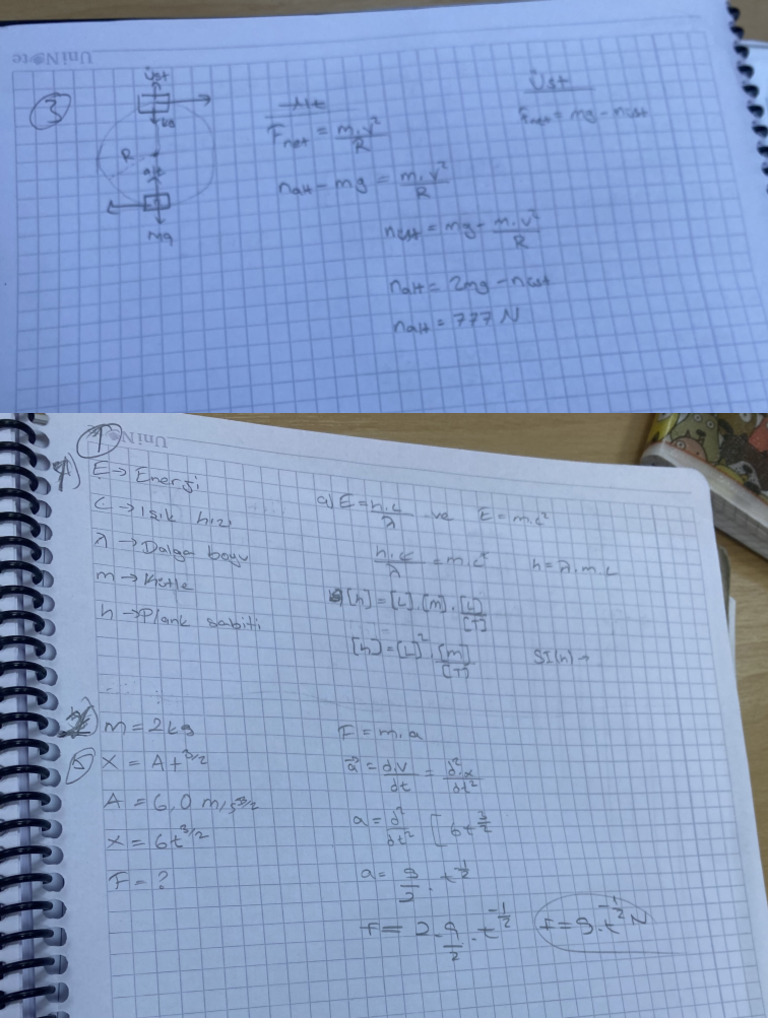 UniNote
3
Üst
mg
R
alt
mg
Alt
F_net = m.v²/R
n_alt - mg = m.v²/R
Üst
F_net = mg - n_üst
n_üst = mg - m.v²/R
n_alt = 2mg - n_üst
n_alt = 777 N
UniNote
1
E → Enerji
C → Işık hızı
λ → Dalga boyu
m → Kütle
h → Plank sabiti
a) E = h.c/λ ve E = m.c²
h.c/λ = m.c² h = λ.m.c
[h] = [L].[m].[L]/[T]
[h] = [L]².[m]/[T] SI(h) →
5
m = 2kg
X = At^3/2
A = 6,0 m/s^3/2
X = 6t^3/2
F = ?
F = m.a
a = d.v/dt = d².x/dt²
a = d²/dt² [6t^3/2
t^-1/2
F = 2.9/2.t^-1/2
F = 9.t^-1/2 N